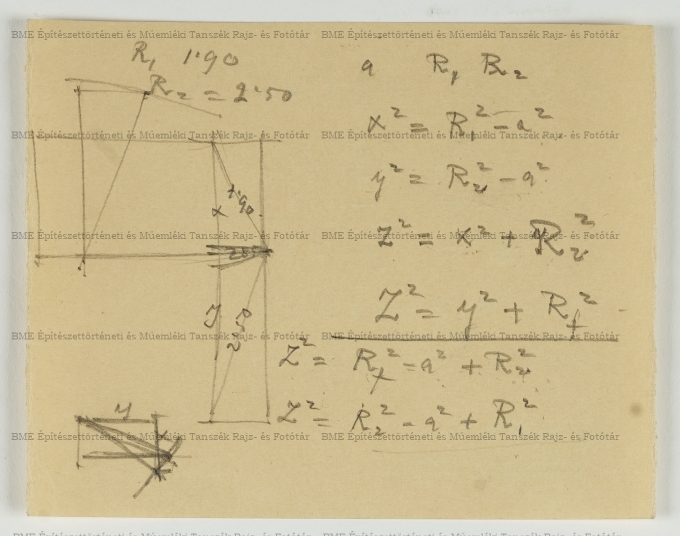 BME Építészettörténeti és Műemléki Tanszék Rajz- és Fotótár BME Építészettörténeti és Műemléki Tanszék Rajz- és Fotótár
R₁ 1·90
R₂ = 2·50
a R₁ R₂
BME Építészettörténeti és Műemléki Tanszék Rajz- és Fotótár BME Építészettörténeti és Műemléki Tanszék Rajz- és Fotótár
x² = R₁² - a²
y² = R₂² - a²
1·90
x
BME Építészettörténeti és Műemléki Tanszék Rajz- és Fotótár BME Építészettörténeti és Műemléki Tanszék Rajz- és Fotótár
z² = x² + R₂²
Z² = y² + R₁²
y
2·50
BME Építészettörténeti és Műemléki Tanszék Rajz- és Fotótár BME Építészettörténeti és Műemléki Tanszék Rajz- és Fotótár
Z² = R₁² - a² + R₂²
Z² = R₂² - a² + R₁²
y
BME Építészettörténeti és Műemléki Tanszék Rajz- és Fotótár BME Építészettörténeti és Műemléki Tanszék Rajz- és Fotótár
BME Építészettörténeti és Műemléki Tanszék Rajz- és Fotótár BME Építészettörténeti és Műemléki Tanszék Rajz- és Fotótár